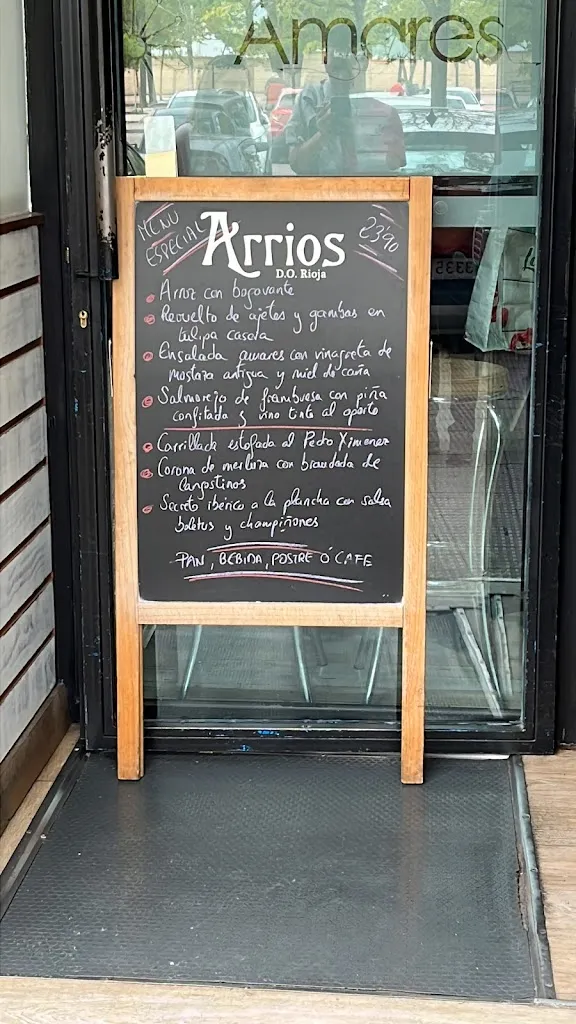 Amares
MENU
ESPECIAL
Arrios
D.O. Rioja
23'90
Arroz con bogavante
Revuelto de ajetes y gambas en
tulipa casera
Ensalada amares con vinagreta de
mostaza antigua y miel de caña
Salmorejo de frambuesa con piña
confitada y vino tinto al oporto
Carrillada estofada al Pedro Ximenez
Corona de merluza con brandada de
langostinos
Secreto ibérico a la plancha con salsa
boletus y champiñones
PAN, BEBIDA, POSTRE O' CAFE